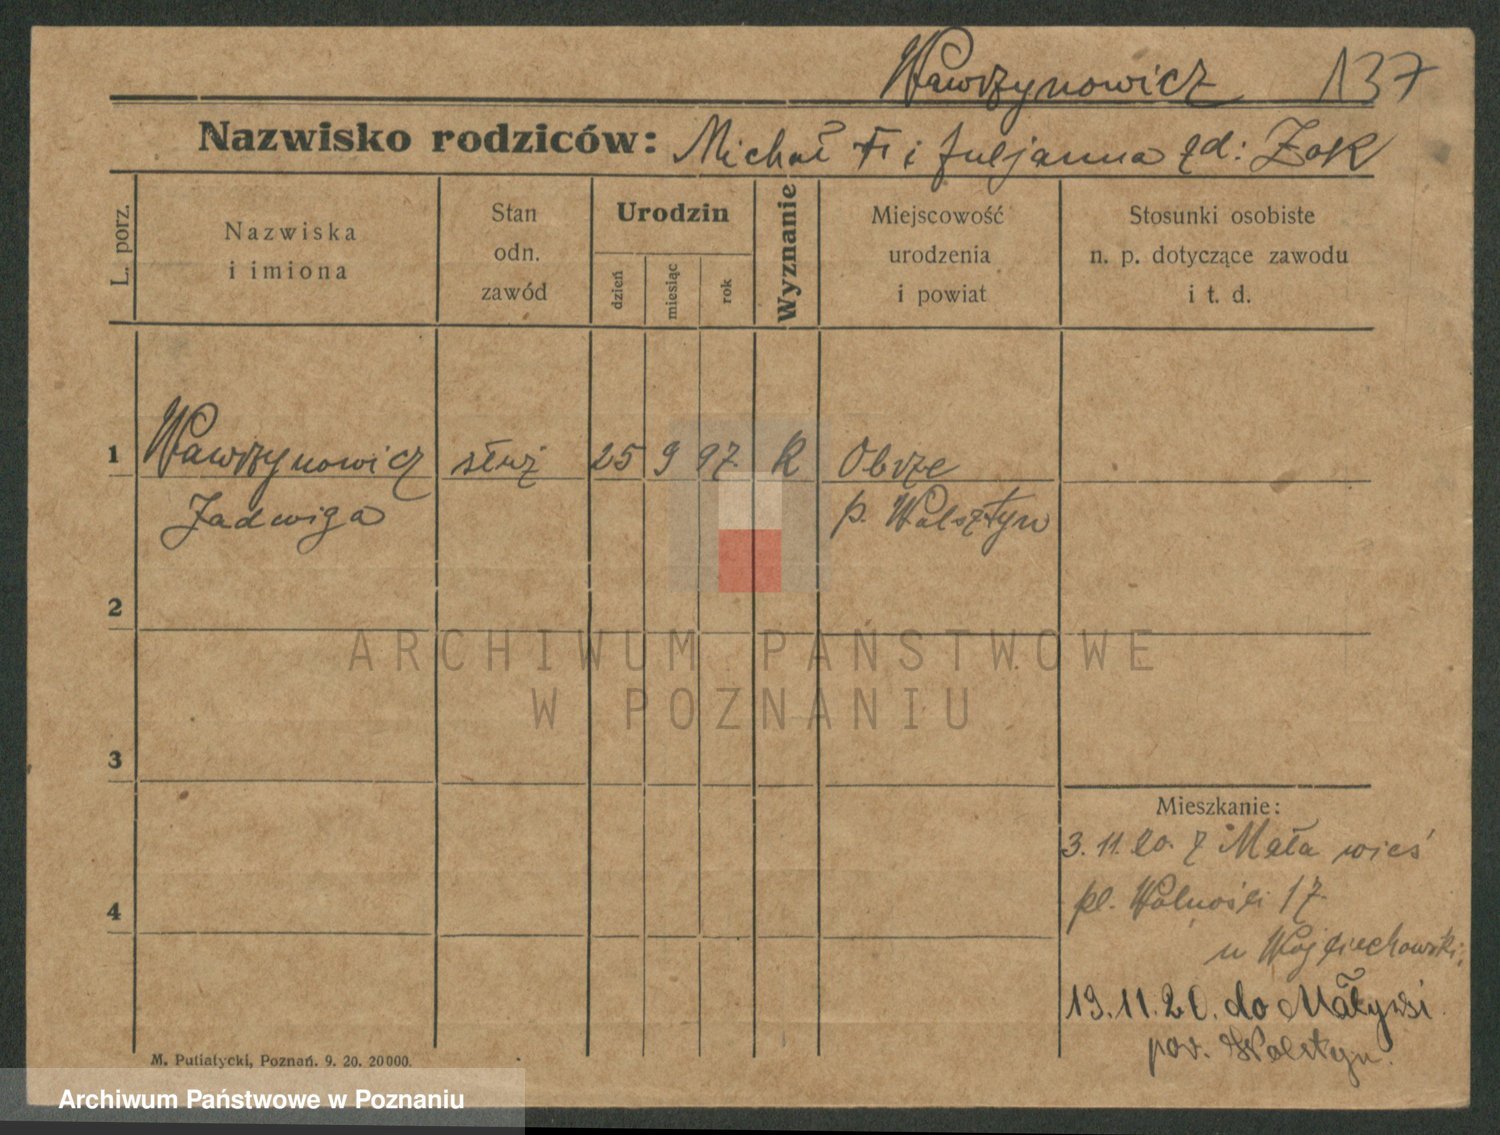 Wawrzynowicz 137
Nazwisko rodziców: Michał i Juljanna zd: Żok
L. porz.
Nazwiska
i imiona
Stan
odn.
zawód
Urodzin
dzień
miesiąc
rok
Wyznanie
Miejscowość
urodzenia
i powiat
Stosunki osobiste
n. p. dotyczące zawodu
i t. d.
1 Wawrzynowicz służ 25 9 97 k Obrze
Jadwiga p. Wolsztyn
2
3
4
Mieszkanie:
3.11.20. z Mała wieś
pl. Wolności 17
u Wojciechowski
19.11.20. do Maływsi
pow. Wolsztyn.
M. Putiatycki, Poznań. 9. 20. 20000.
ARCHIWUM PAŃSTWOWE
W POZNANIU
Archiwum Państwowe w Poznaniu